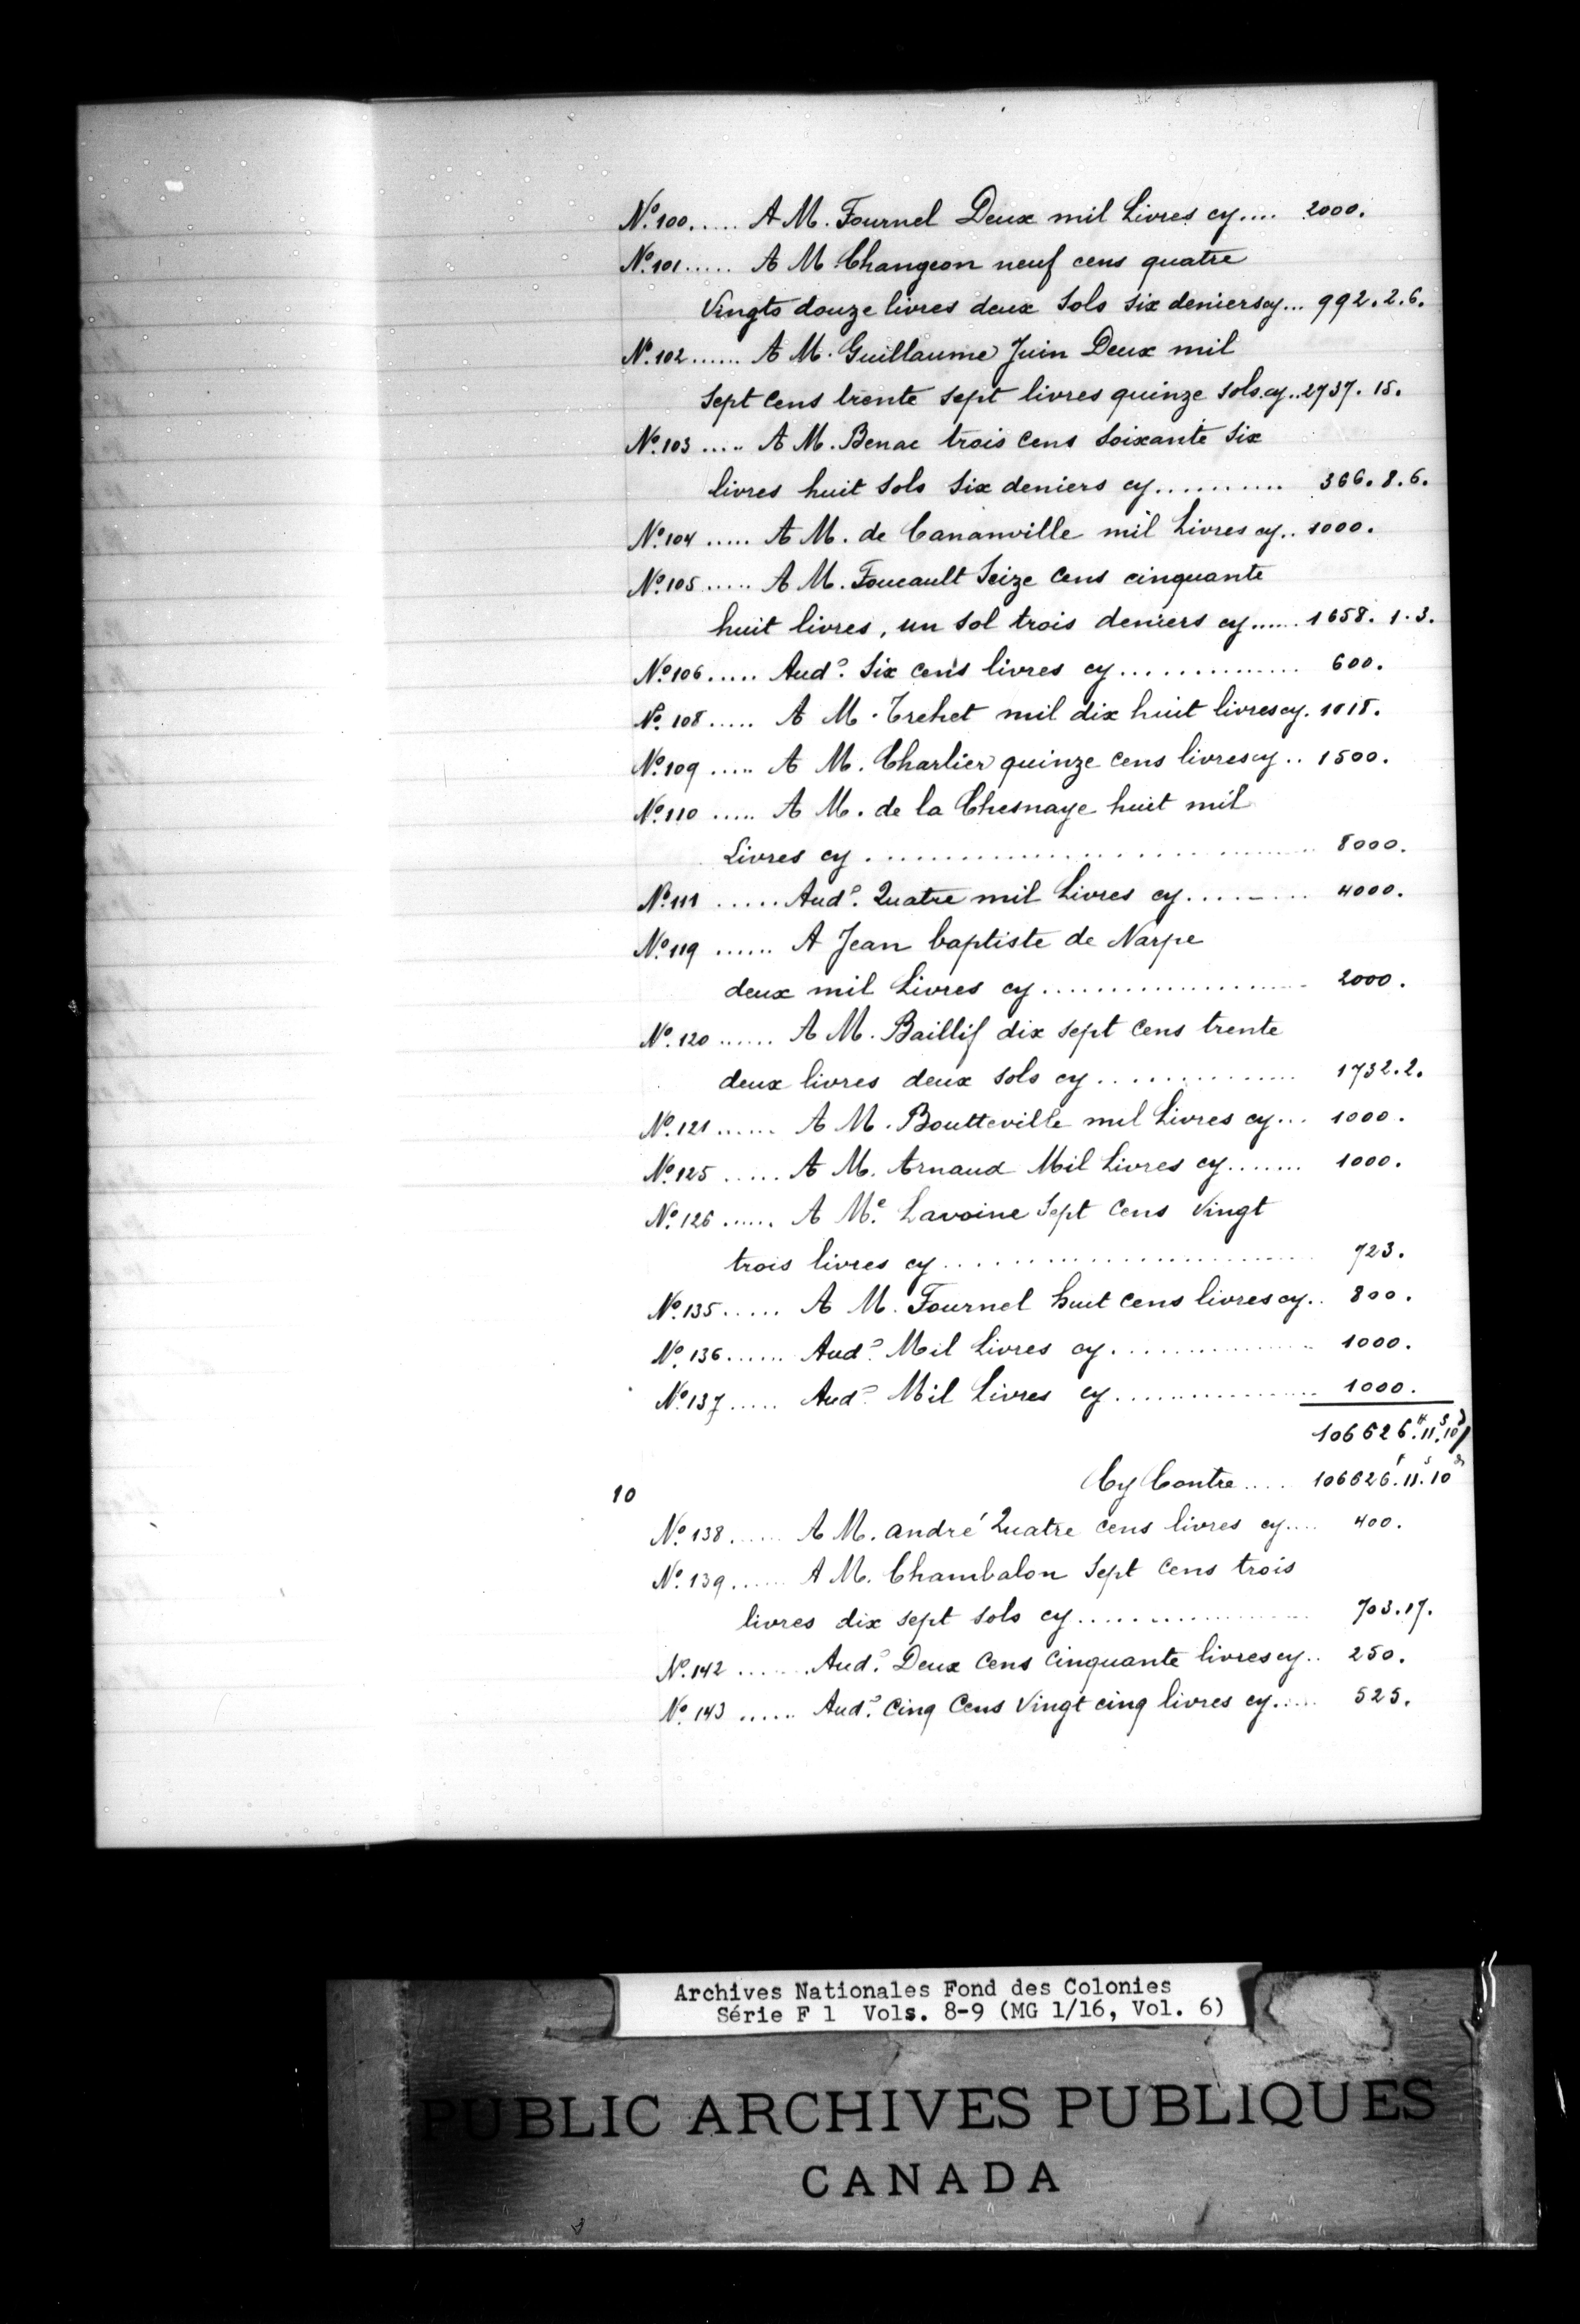 Nº.100..... A M. Fournel Deux mil Livres cy.... 2000.
Nº.101..... A M. Changeon neuf cens quatre
Vingts douze livres deux Sols Six deniers cy... 992.2.6.
Nº.102...... A M. Guillaume Juin Deux mil
Sept Cens trente Sept livres quinze Sols cy..2737.15.
Nº.103..... A M. Benac trois Cens Soixante Six
livres huit Sols Six deniers cy.......... 366.8.6.
Nº.104..... A M. de Cananville mil Livres cy.. 1000.
Nº.105..... A M. Foucault Seize Cens cinquante
huit livres, un Sol trois deniers cy...... 1658.1.3.
Nº.106..... Audº. Six cens livres cy.............. 600.
Nº.108..... A M. Trehet mil dix huit livres cy. 1018.
Nº.109..... A M. Charlier quinze Cens livres cy.. 1500.
Nº.110..... A M. de la Chesnaye huit mil
Livres cy............................ 8000.
Nº.111..... Audº. Quatre mil Livres cy......... 4000.
Nº.119...... A Jean baptiste de Narpe
deux mil Livres cy.................... 2000.
Nº.120...... A M. Baillif dix Sept Cens trente
deux livres deux Sols cy............... 1732.2.
Nº.121...... A M. Boutteville mil Livres cy... 1000.
Nº.125..... A M. Arnaud Mil Livres cy....... 1000.
Nº.126...... A Mᵉ. Lavoine Sept Cens Vingt
trois livres cy........................ 723.
Nº.135..... A M. Fournel huit Cens livres cy.. 800.
Nº.136...... Audº. Mil Livres cy............... 1000.
Nº.137..... Audº. Mil Livres cy............... 1000.
106626.11.10
10 Cy Contre.... 106626.11.10
Nº.138...... A M. andré Quatre Cens livres cy.... 400.
Nº.139...... A M. Chambalon Sept Cens trois
livres dix Sept Sols cy................. 703.17.
Nº.142...... Audº. Deux Cens Cinquante livres cy.. 250.
Nº.143...... Audº. Cinq Cens Vingt cinq livres cy..... 525.
Archives Nationales Fond des Colonies
Série F 1 Vols. 8-9 (MG 1/16, Vol. 6)
PUBLIC ARCHIVES PUBLIQUES
CANADA